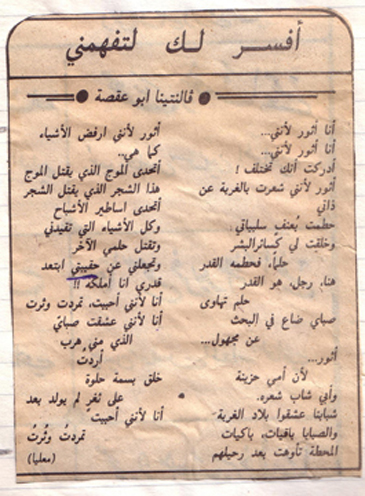 أفسر لك لتفهمني
ڤالنتينا ابو عقصة
أنا أثور لأنني...
أنا أثور لأنني...
أدركت أنك تختلف !
أثور لأنني شعرت بالغربة عن
ذاتي
حطمت بُعنفٍ سلبياتي
وخلقت لي كسائرالبشر
حلماً، فحطمه القدر
هنا، رجل، هو القدر
حلم تهاوى
صباي ضاع في البحث
عن مجهول...
أثور...
لأن أمي حزينة
وأبي شاب شعره.
شبابنا عشقوا بلاد الغربة
والصبايا باقيات، باكيات
المحطة تأوهت بعد رحيلهم
أثور لأنني ارفض الأشياء
كما هي..
أتحدى الموج الذي يقتل الموج
هذا الشجر الذي يقتل الشجر
أتحدى اساطير الأشباح
وكل الأشياء التي تقيدني
وتقتل حلمي الآخر
وتجعلني عن حقيبتي ابتعد
قدري انا أملكه !!
أنا لأنني أحببت، تمردت وثرت
أنا لأنني عشقت صبايَ
الذي مني هرب
أردتُ
خلق بسمة حلوة
على ثغرٍ لم يولد بعد
أنا لأنني أحببت
تمردتُ وثُرتُ
(معليا)